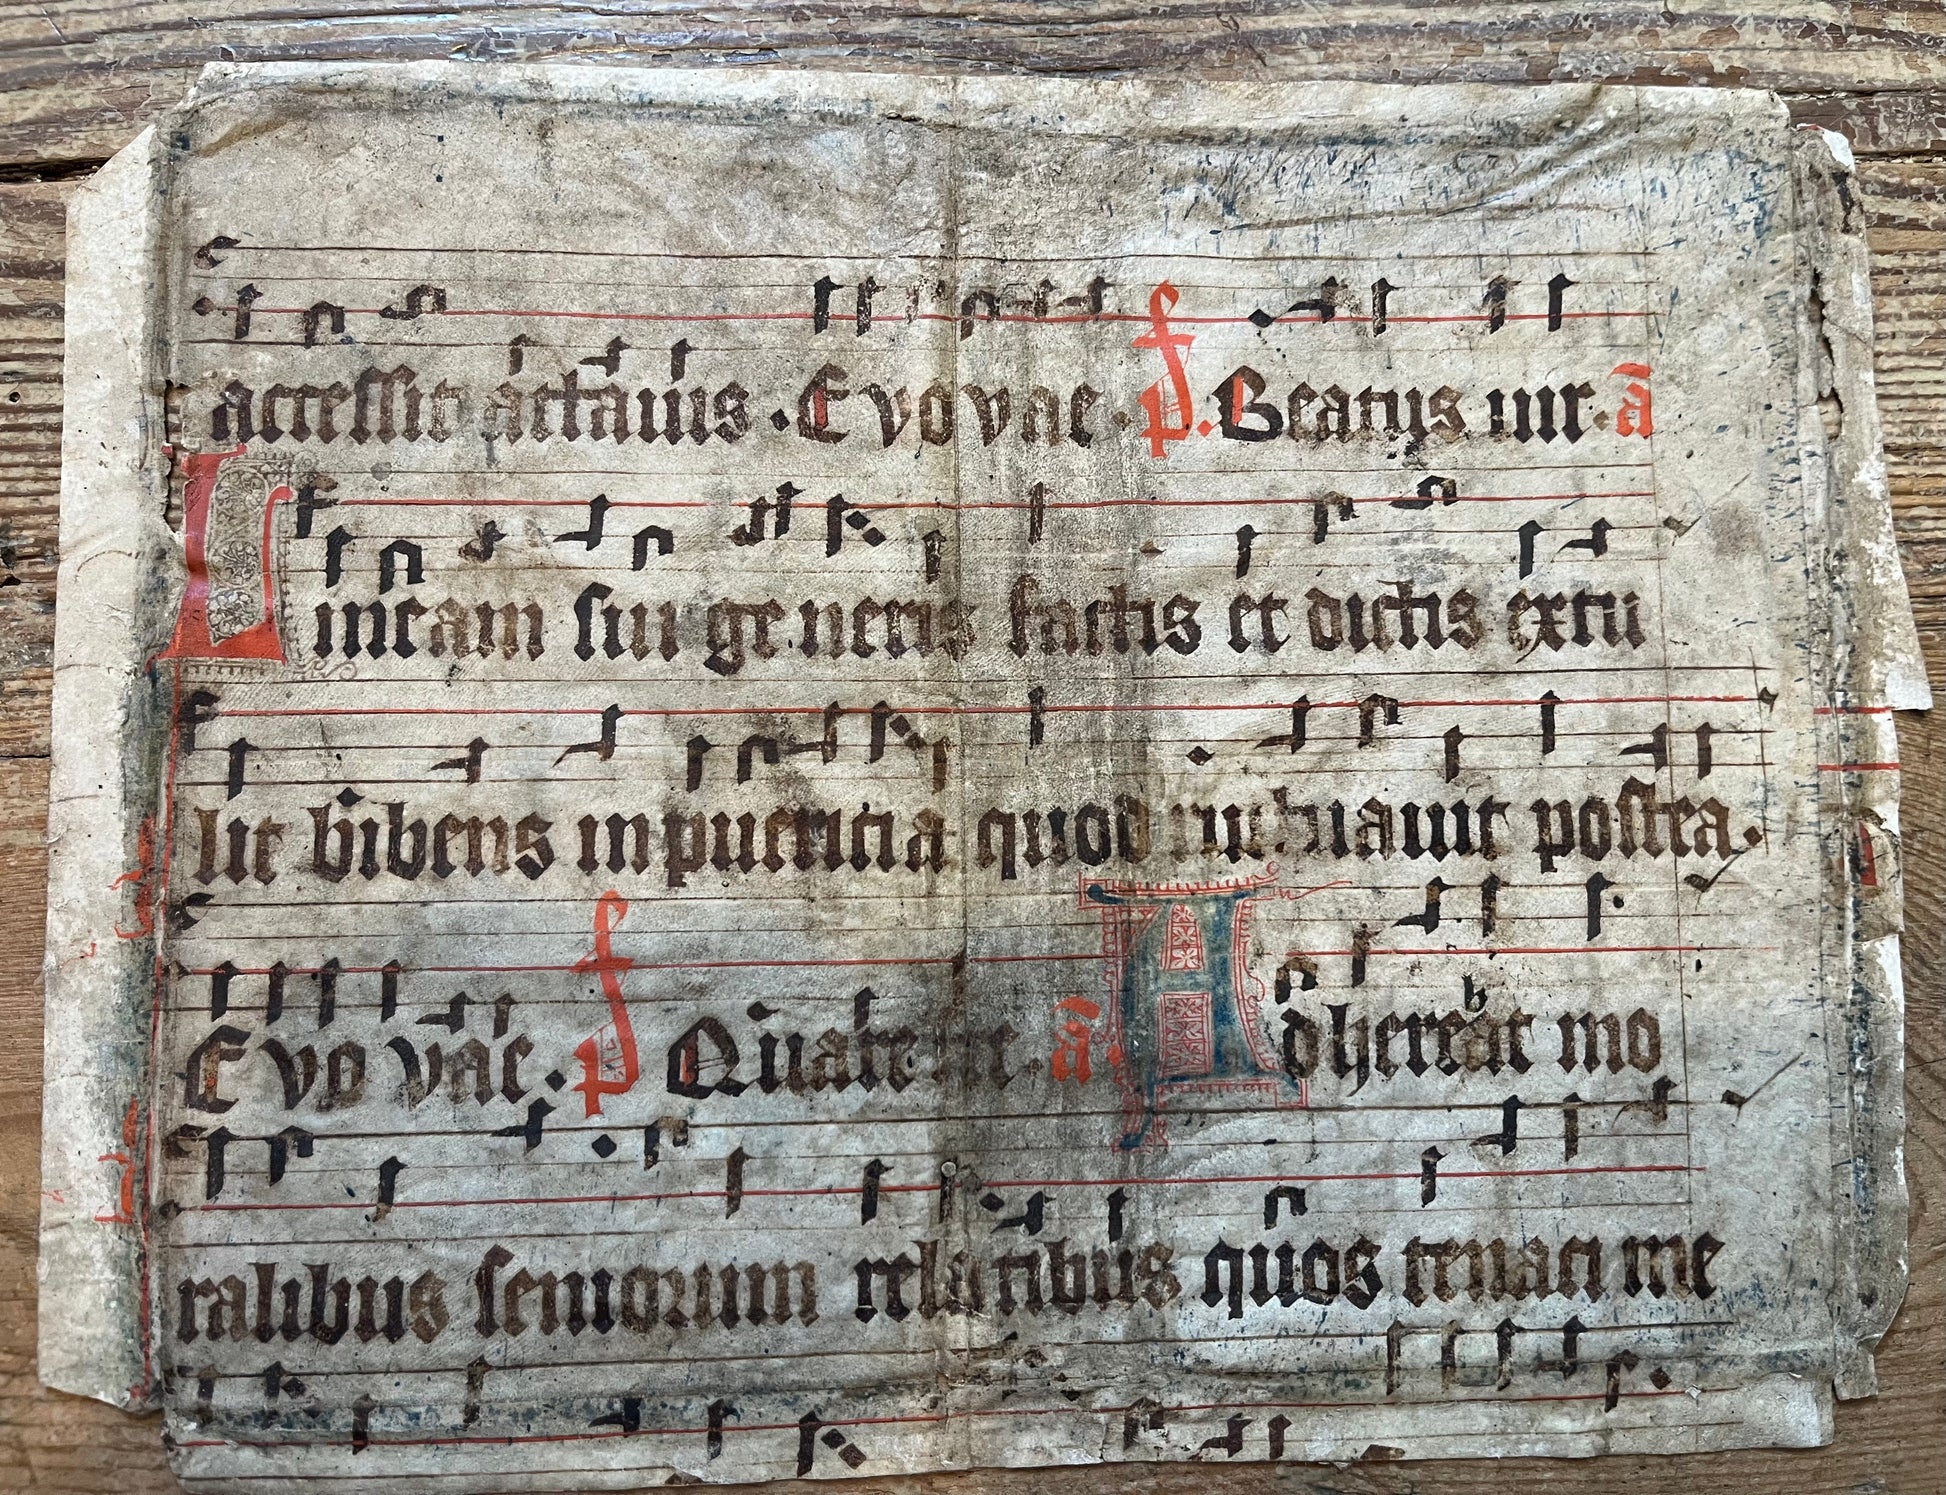 accessit actauis . Evovae . p͞s. Beatus uir . a͞
Lineam sui generis factis et dictis extu
lit bibens in puericia quod ructuauit postea .
Evovae . p͞s Quare . a͞. Adhereat mo
ralibus seniorum relatibus quos tenaci me